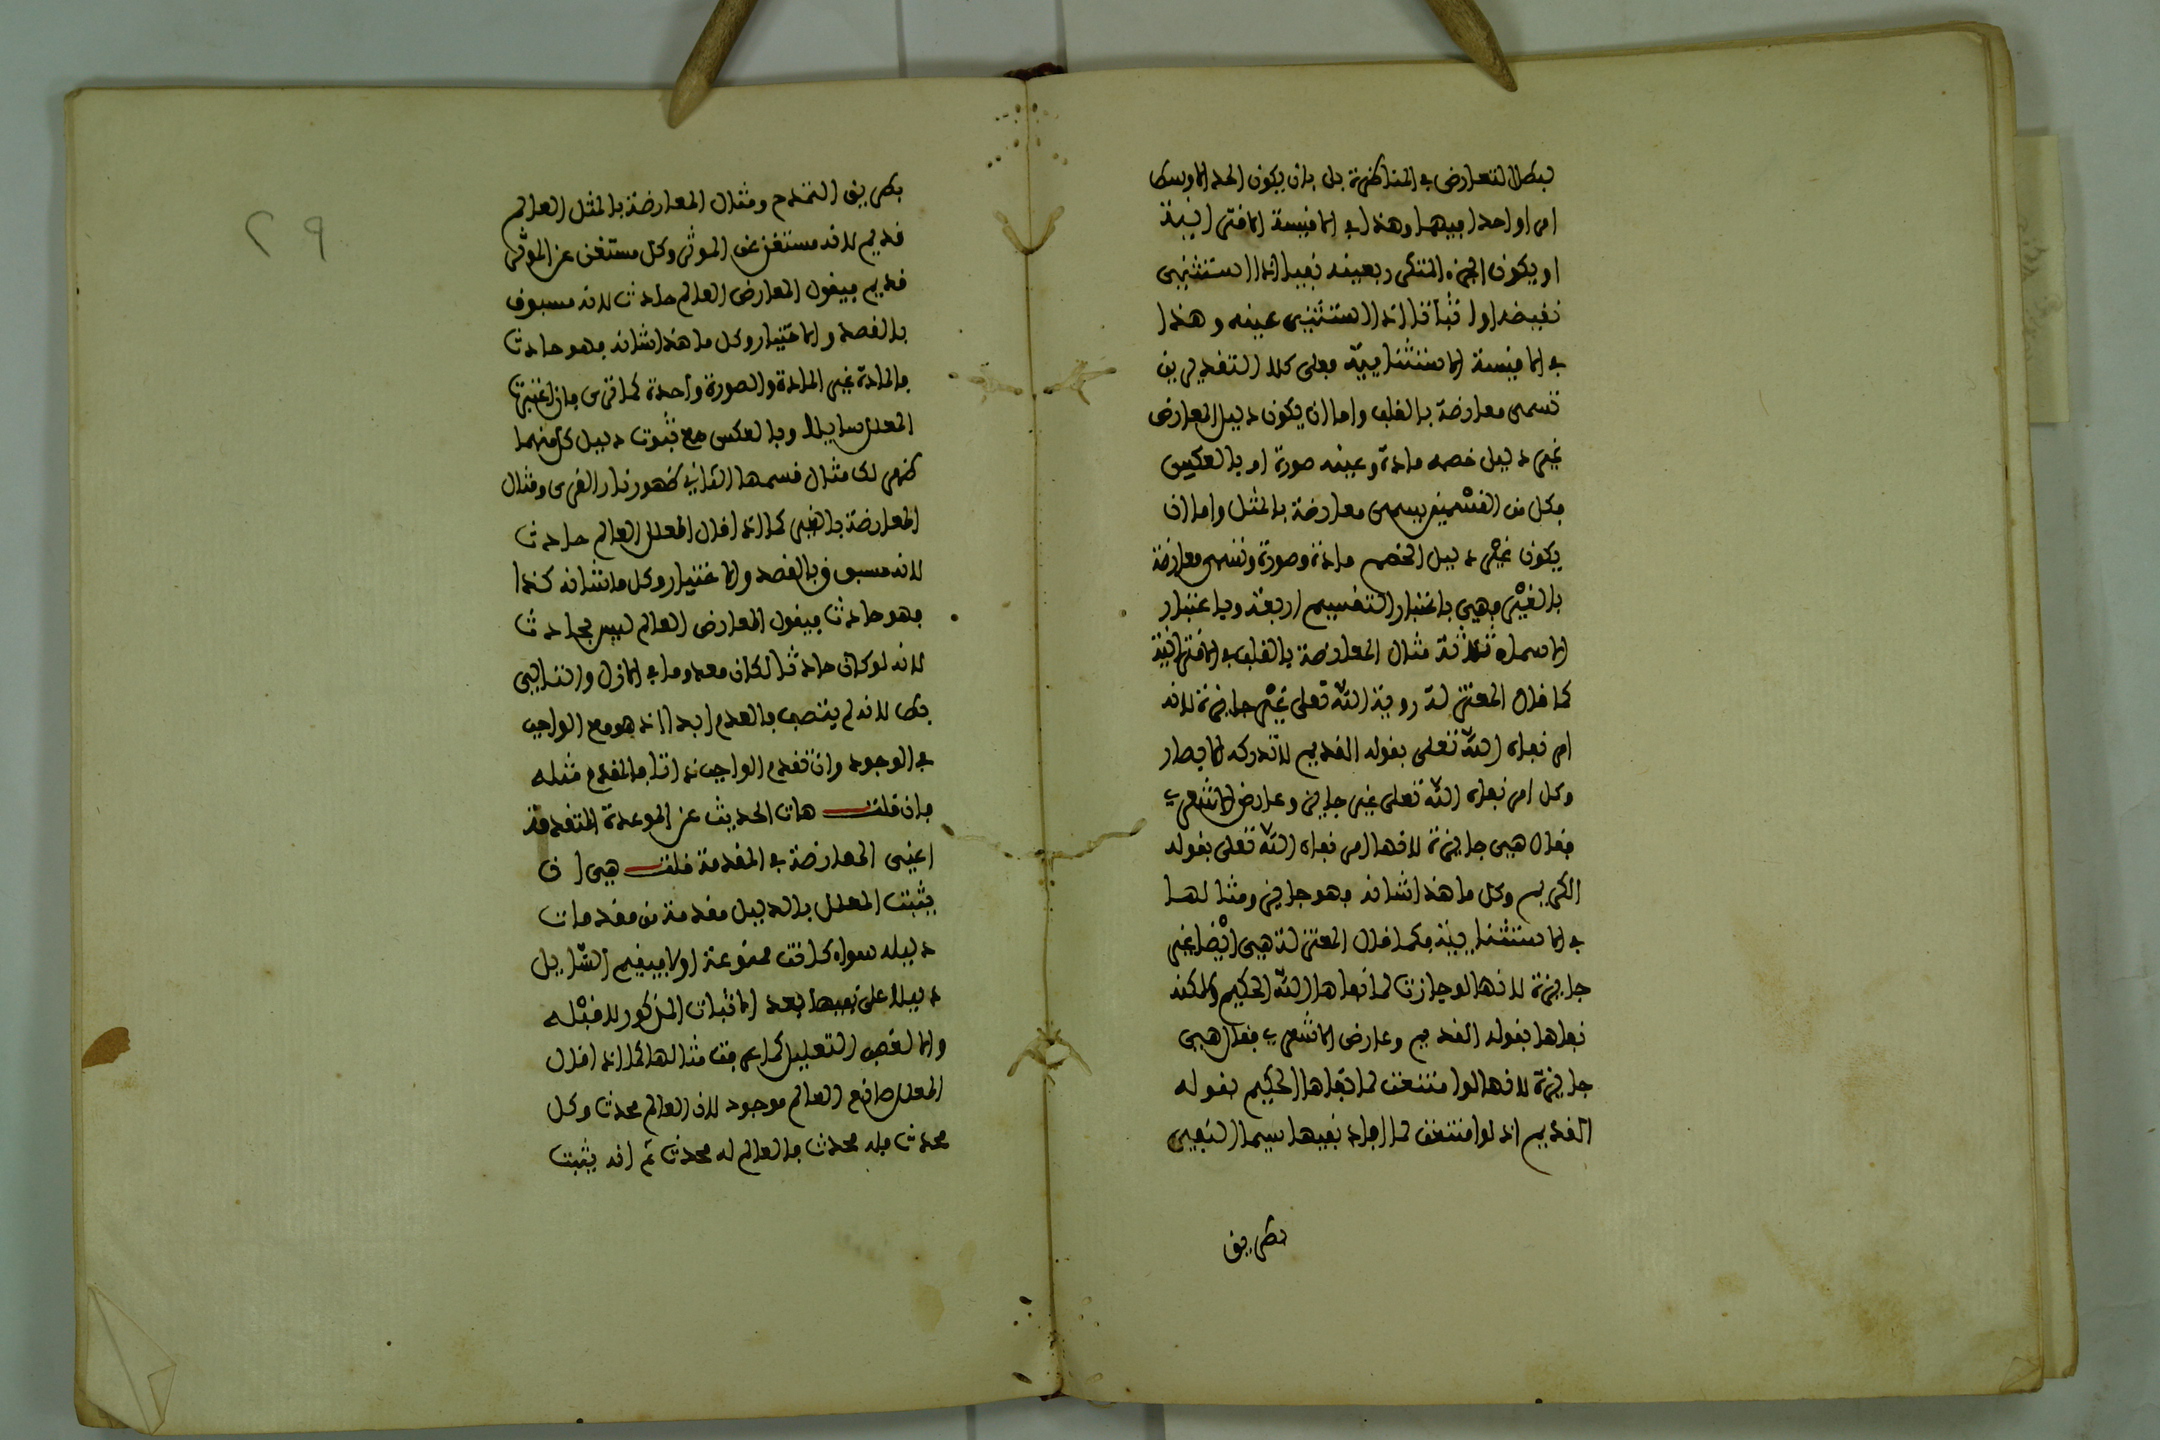 لبطل التعارض في المناظرة بل بان يكون الحد الاوسط
امرا واحدا فيهما وهذا في الاقيسة الاقترانية
او يكون الجزء المتكرر بعينه نفيا اذا استثنيى
نقيضه او اثباتا اذا استثنيى عينه وهذا
في الاقيسة الاستثنايية فعلى كلا التقديرين
تسمى معارضة بالقلب واما ان يكون دليل المعارض
غير دليل خصمه مادة وعينه صورة او بالعكس
فكل من القسمين يسمى معارضة بالمثل واما ان
يكون غير دليل الخصم مادة وصورة وتسمى معارضة
بالغير فهي باعتبار التقسيم اربعة وباعتبار
الاسماء ثلاثة مثال المعارضة بالقلب في الاقترانية
كما قال المعتزلة روية الله تعلى غير جايزة لانه
امر نفاه الله تعلى بقوله القديم لا تدركه الابصار
وكل امر نفاه الله تعلى غير جايز وعارض الاشعري
فقال هي جايزة لانها امر نفاه الله تعلى بقوله
الكريم وكل ما هذا شانه فهو جايز ومثالها
في الاستثنايية فكما قال المعتزلة هي ايضا غير
جايزة لانها لو جازت لما نفاها الله الحكيم ولكنه
نفاها بقوله القديم وعارض الاشعري فقال هي
جايزة لانها لو امتنعت لما نفاها الحكيم بقوله
القديم اذ لو امتنعت لما افاد نفيها سيما النفي
بطريق
بطريق التمدح ومثال المعارضة بالمثل العالم
قديم لانه مستغن عن الموثر وكل مستغن عن الموثر
قديم فيقول المعارض العالم حادث لانه مسبوق
بالقصد والاختيار وكل ما هذا شانه فهو حادث
فالمادة غير المادة والصورة واحدة كما ترى فان اعتبرتها
المعلل سايلا وبالعكس مع ثبوت دليل كل منهما
ظهر لك مثال قسمها الثاني ظهور نار القرى ومثال
المعارضة بالغير كما اذا قال المعلل العالم حادث
لانه مسبوق بالقصد والاختيار وكل ما شانه كذا
فهو حادث فيقول المعارض العالم ليس بحادث
لانه لو كان حادثا لكان معدوما في الازل والتالي
بطل لانه لم يتصف بالعدم ابدا اذ هو مع الواجب
في الوجود وان تقدم الواجب ذاتا فالمقدم مثله
فان قلت هات الحديث عن الموعدة المتقدمة
اعني المعارضة في المقدمة قلت هي ان
يثبت المعلل بالدليل مقدمة من مقدمات
دليله سواء كانت ممنوعة اولا فيقيم السايل
دليلا على نفيها بعد الاثبات المذكور لا قبله
والا لغصب التعليل كما عرفت مثالها كما اذا قال
المعلل صانع العالم موجود لان العالم محدث وكل
محدث فله محدث فالعالم له محدث ثم انه يثبت
٢٩